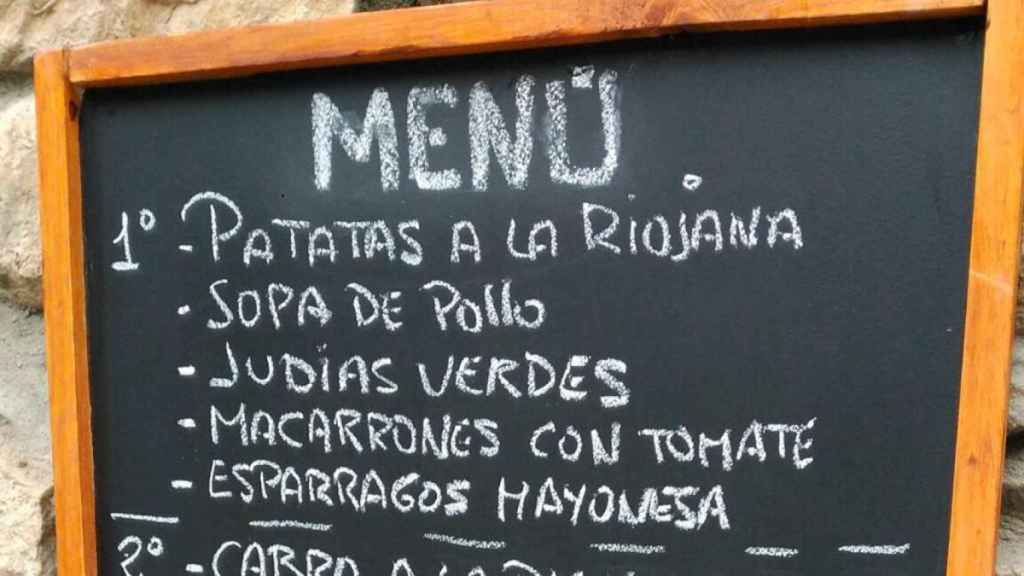 MENÚ
1º - PATATAS A LA RIOJANA
- SOPA DE POLLO
- JUDIAS VERDES
- MACARRONES CON TOMATE
- ESPARRAGOS MAYONESA
2º -